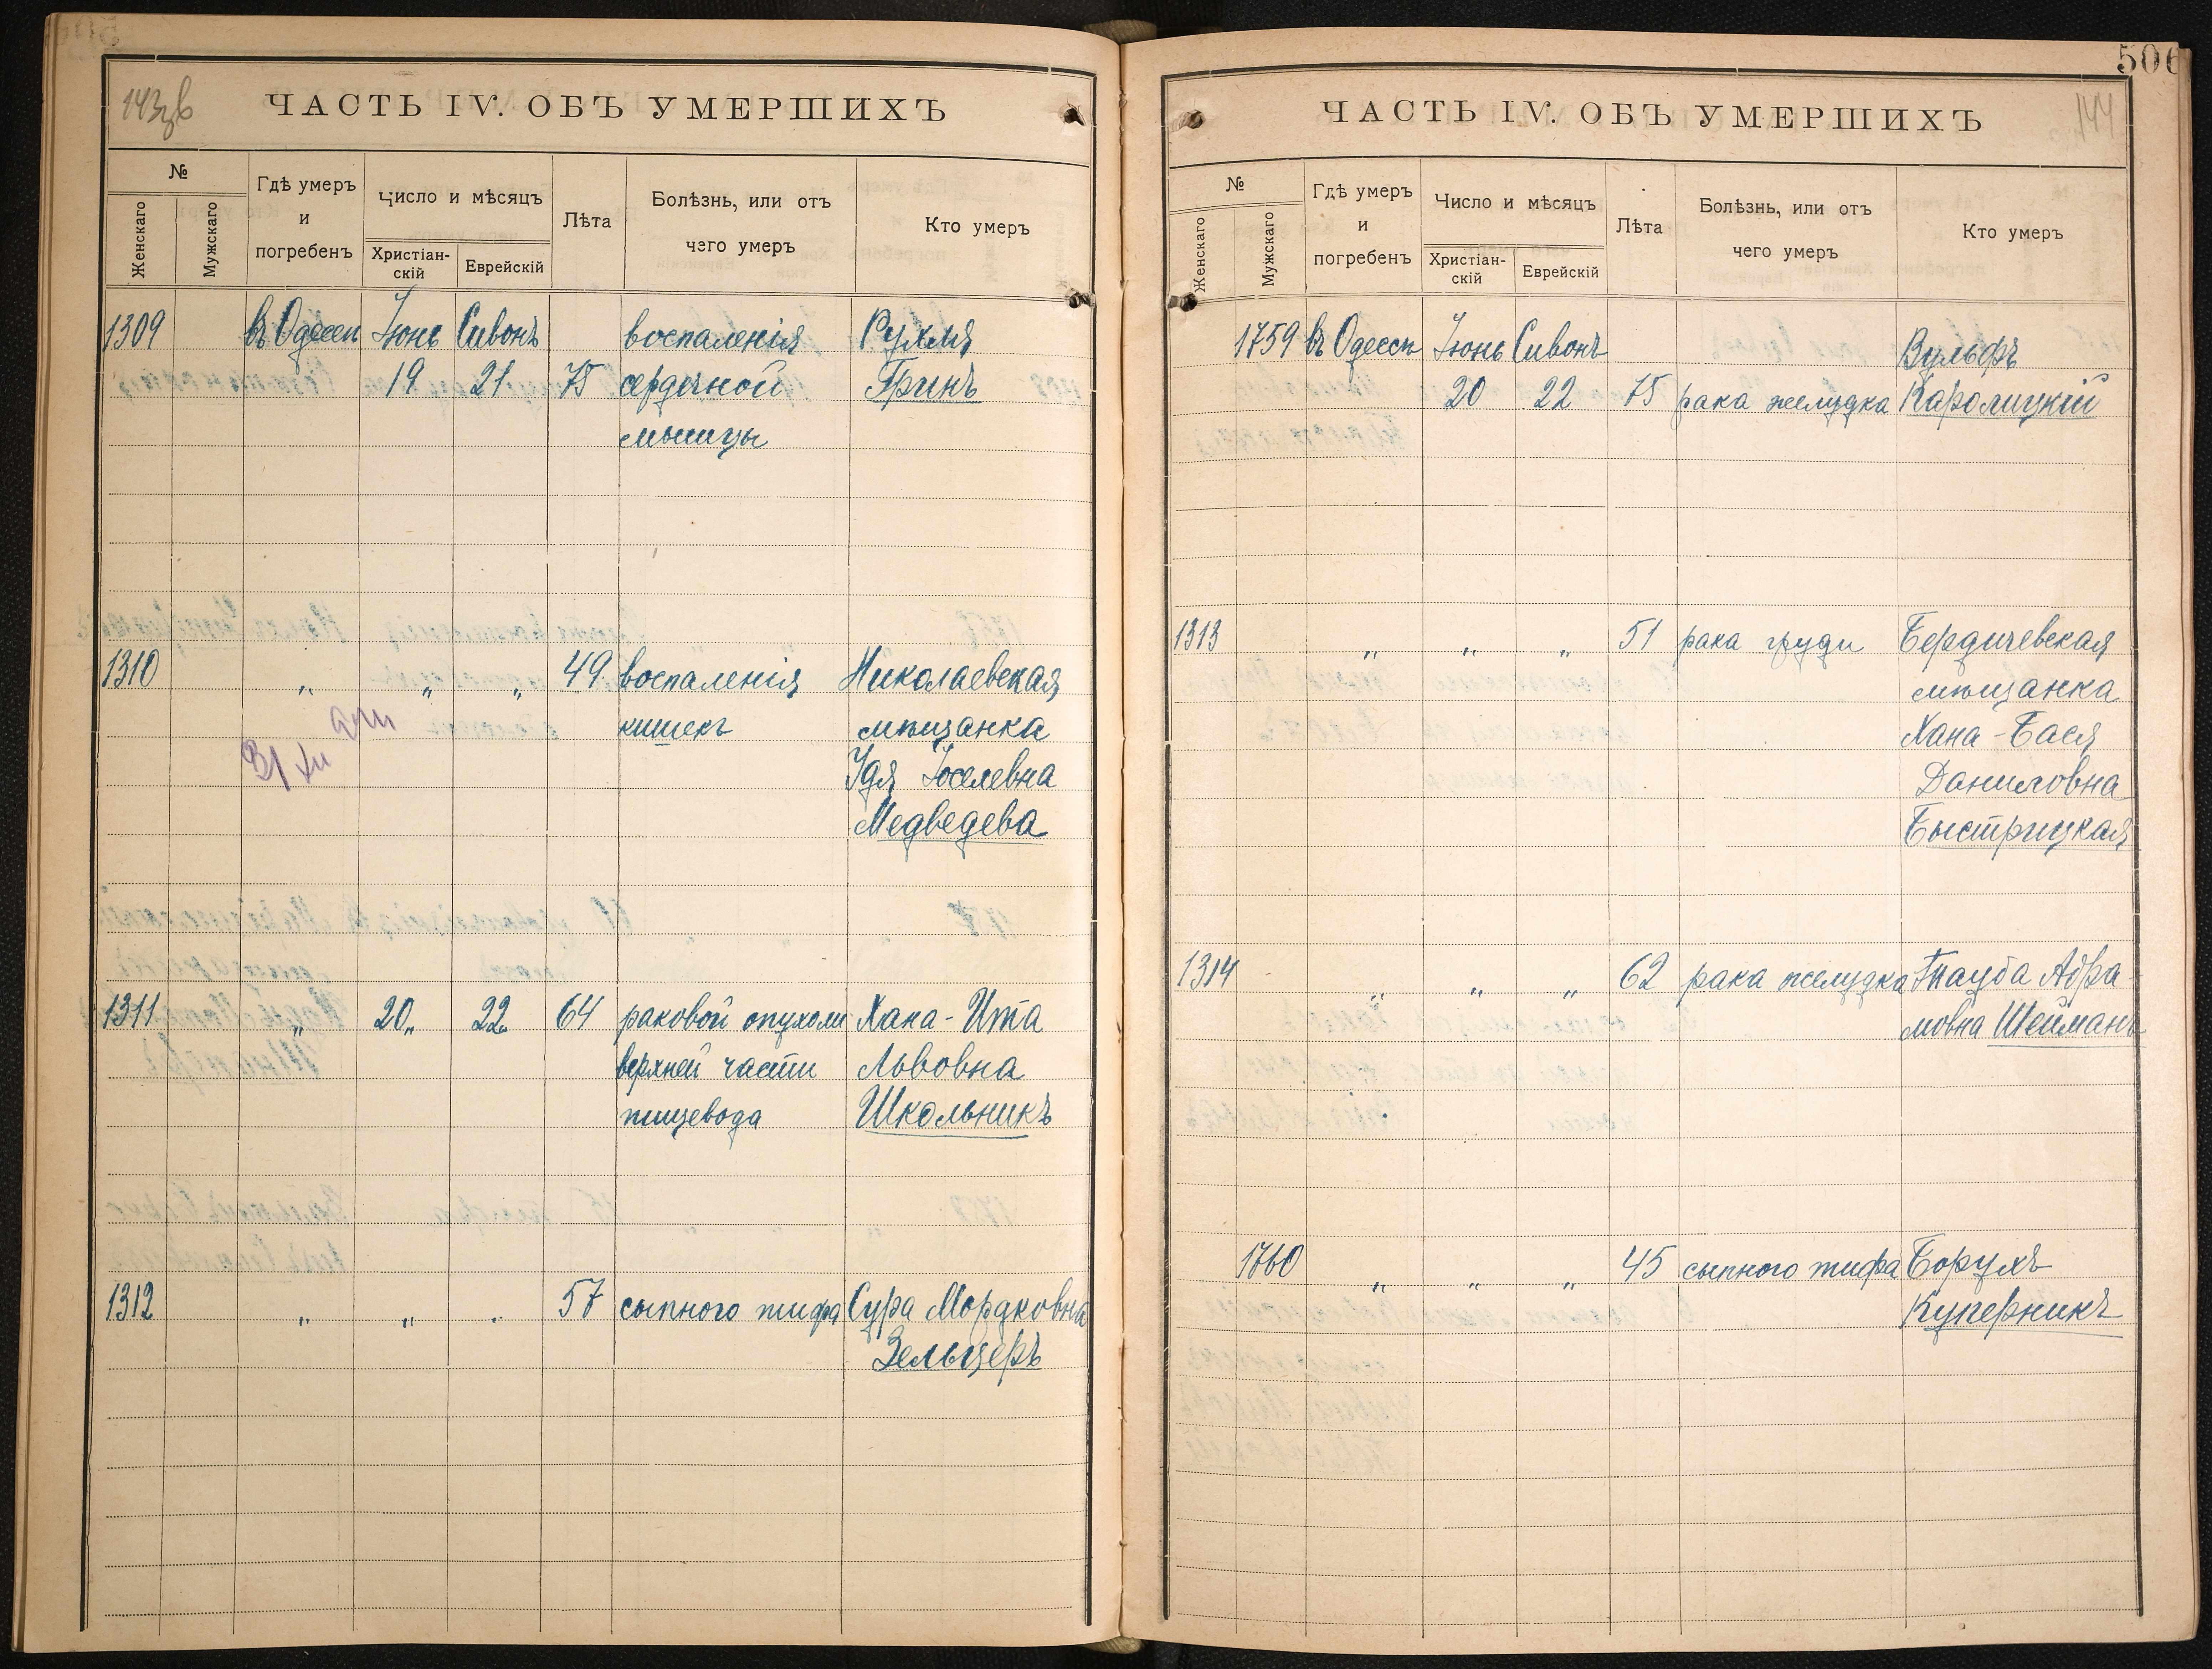 143 об
ЧАСТЬ IV. ОБЪ УМЕРШИХЪ
№
Женскаго
Мужскаго
Гдѣ умеръ
и
погребенъ
Число и мѣсяцъ
Христіан-
скій
Еврейскій
Лѣта
Болѣзнь, или отъ
чего умеръ
Кто умеръ
1309 въ Одессѣ Іюнь Сивонъ воспаленія Рухля
19 21 75 сердечной Гринъ
мышцы
1310 „ „ „ 49 воспаленія Николаевская
кишекъ мѣщанка
Удя Іоселевна
Медведева
1311 „ 20„ 22„ 64 раковой опухоли Хана-Ита
верхней части Львовна
пищевода Школьникъ
1312 „ „ „ 57 сыпного тифа Сура Мордковна
Зельцеръ
506
ЧАСТЬ IV. ОБЪ УМЕРШИХЪ
144
№
Женскаго
Мужскаго
Гдѣ умеръ
и
погребенъ
Число и мѣсяцъ
Христіан-
скій
Еврейскій
Лѣта
Болѣзнь, или отъ
чего умеръ
Кто умеръ
1759 въ Одессѣ Іюнь Сивонъ Вульфъ
20 22 75 рака желудка Каролицкій
1313 „ „ „ 51 рака груди Бердичевская
мѣщанка
Хана-Бася
Даниловна
Быстрицкая
1314 „ „ „ 62 рака желудка Тауба Абра-
мовна Шейманъ
1760 „ „ „ 45 сыпного тифа Борухъ
Куперникъ